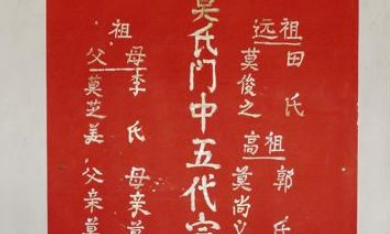 远祖
田氏
莫俊之
高祖
郭氏
莫尚义
氏门中五代宗
祖
母李氏 母亲莫
父莫芝美 父亲莫